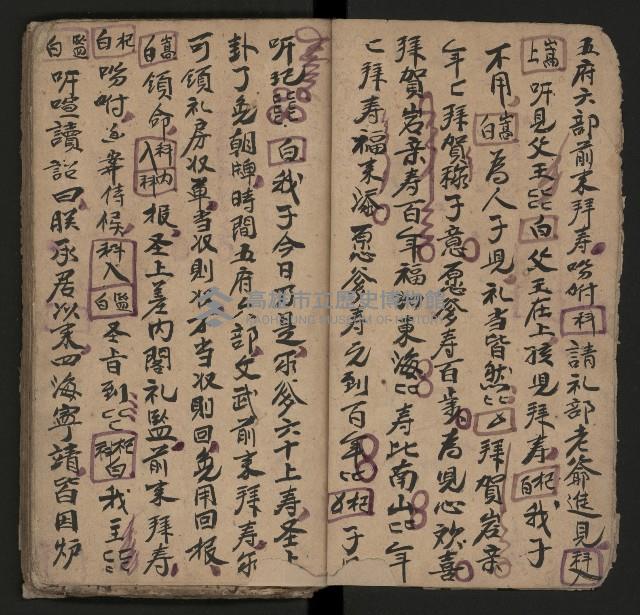 五府六部前來拜寿吩咐科請礼部老爺進見科入
嵩上听見父王〻白父王在上孩児拜寿杞白我子
不用嵩白為人子児礼当皆然〻拜賀岩亲
年〻拜賀称子意愿爹寿百歩為児心欢喜
拜賀岩亲寿百年福如東海〻寿比南山〻年
〻拜寿福来添愿爹寿元到百年〻杞子
听〻白我子今日乃是爹六十上寿圣上
卦了免朝牌時間五府六部文武前來拜寿
可領礼房収單当収則収不当収則回免用回報
嵩白領命科内入科報圣上差内閣礼監前來拜寿
杞白吩咐香案侍候科入監白圣旨到〻杞科白我王〻
監白听喧讀詔曰朕承居以来四海寧靖皆因炉
高雄市立歷史博物館
KAOHSIUNG MUSEUM OF HISTORY